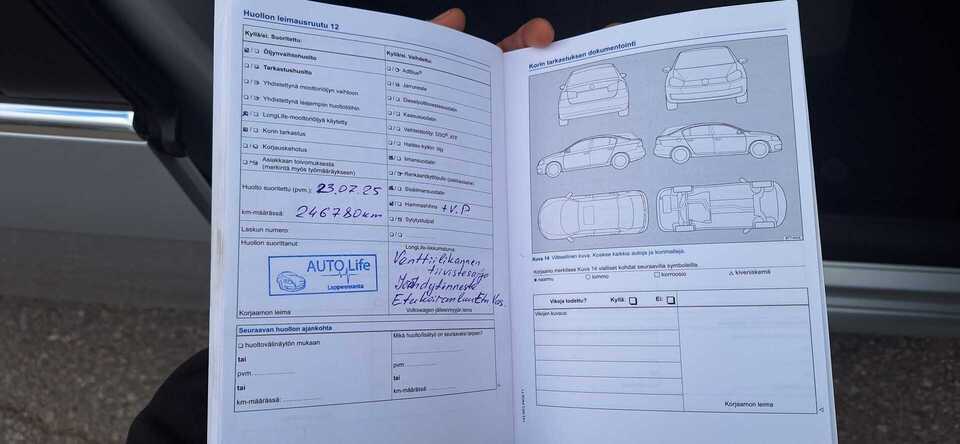 Huollon leimausruutu 12
Kyllä/ei: Suoritettu:
Öljynvaihtohuolto
Tarkastushuolto
Yhdistettynä moottoriöljyn vaihtoon
Yhdistettynä laajempiin huoltotöihin
LongLife-moottoriöljyä käytetty
Korin tarkastus
Korjauskehotus
Asiakkaan toivomuksesta
(merkintä myös työmääräykseen)
Huolto suoritettu (pvm.): 23.07.25
km-määrässä: 246780km
Laskun numero:
Huollon suorittanut:
AUTO Life
Lappeenranta
Korjaamon leima
Kyllä/ei: Vaihdettu:
AdBlue®
Jarruneste
Dieselpolttoainesuodatin
Kaasusuodatin
Vaihteistoöljy: DSG®, ATF
Haldex-kytkin: öljy
Ilmansuodatin
Renkaantäyttöpullo (paikkausaine)
Sisäilmansuodatin
Hammashihna +V.P
Sytytystulpat
LongLife-liikkumisturva:
Venttiilikannen
tiivistesarja
Jäähdytinneste
Etukoiranluut
Volkswagen-jälleenmyyjän leima
Seuraavan huollon ajankohta
huoltovälinäytön mukaan
tai
pvm
tai
km-määrässä:
Mikä huolto/lisätyö on seuraavaksi tarpeen?
pvm
tai
km-määrässä
Korin tarkastuksen dokumentointi
Kuva 14 Viitteellinen kuva: Koskee kaikkia autoja ja korimalleja.
Korjaamo merkitsee Kuva 14 vialliset kohdat seuraavilla symboleilla
naarmu lommo korroosio kiveniskemä
Vikoja todettu? Kyllä: Ei:
Vikojen kuvaus:
Korjaamon leima